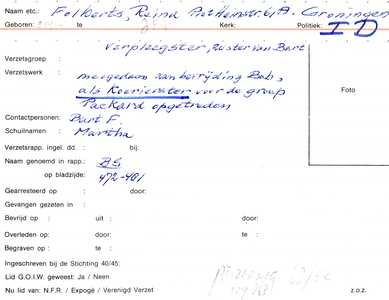 Naam etc.: Folkerts, Reina Piet Heinstr. 6/A. Groningen
Geboren: te Kerk: Politiek: ID
verpleegster, zuster van Bart
Verzetsgroep :
Verzetswerk : meegedaan aan bevrijding Bob,
als Koerierster voor de groep
Packard opgetreden
Foto
Contactpersonen: Bart F.
Schuilnamen : Martha
Verzetsrapp. ingel. dd. : bij:
Naam genoemd in rapp.: BS
op bladzijde: 472-481
Gearresteerd op : door:
Gevangen gezeten in :
Bevrijd op : uit : door:
Overleden op: door: te :
Begraven op : te :
Ingeschreven bij de Stichting 40/45:
Lid G.O.I.W. geweest: Ja / Neen
Nu lid van: N.F.R. / Expogé / Verenigd Verzet z.o.z.